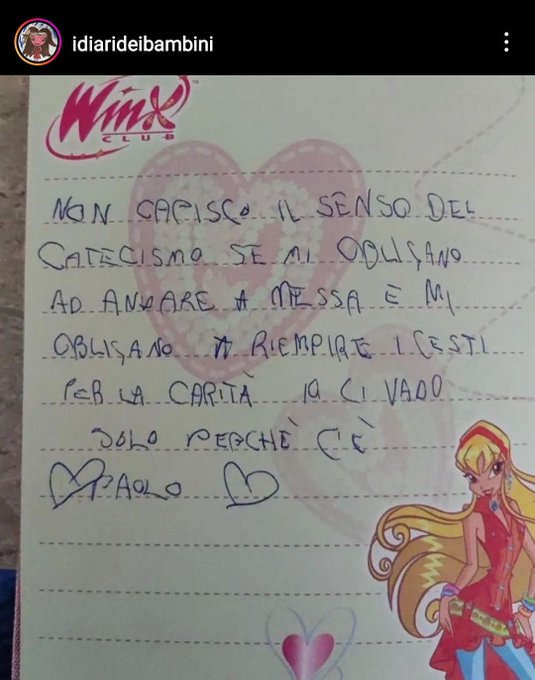 idiarideibambini
WinX™
CLUB
NON CAPISCO IL SENSO DEL
CATECISMO SE MI OBLIGANO
AD ANDARE A MESSA E MI
OBLIGANO A RIEMPIRE I CESTI
PER LA CARITÀ IO CI VADO
SOLO PERCHÈ C'È
PAOLO